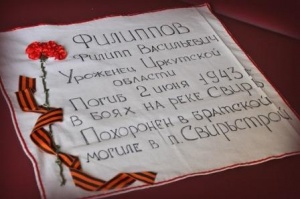 Филиппов
Филипп Васильевич
Уроженец Иркутской
области
Погиб 2 июня 1943
в боях на реке Свирь
Похоронен в братской
могиле в п. Свирьстрой